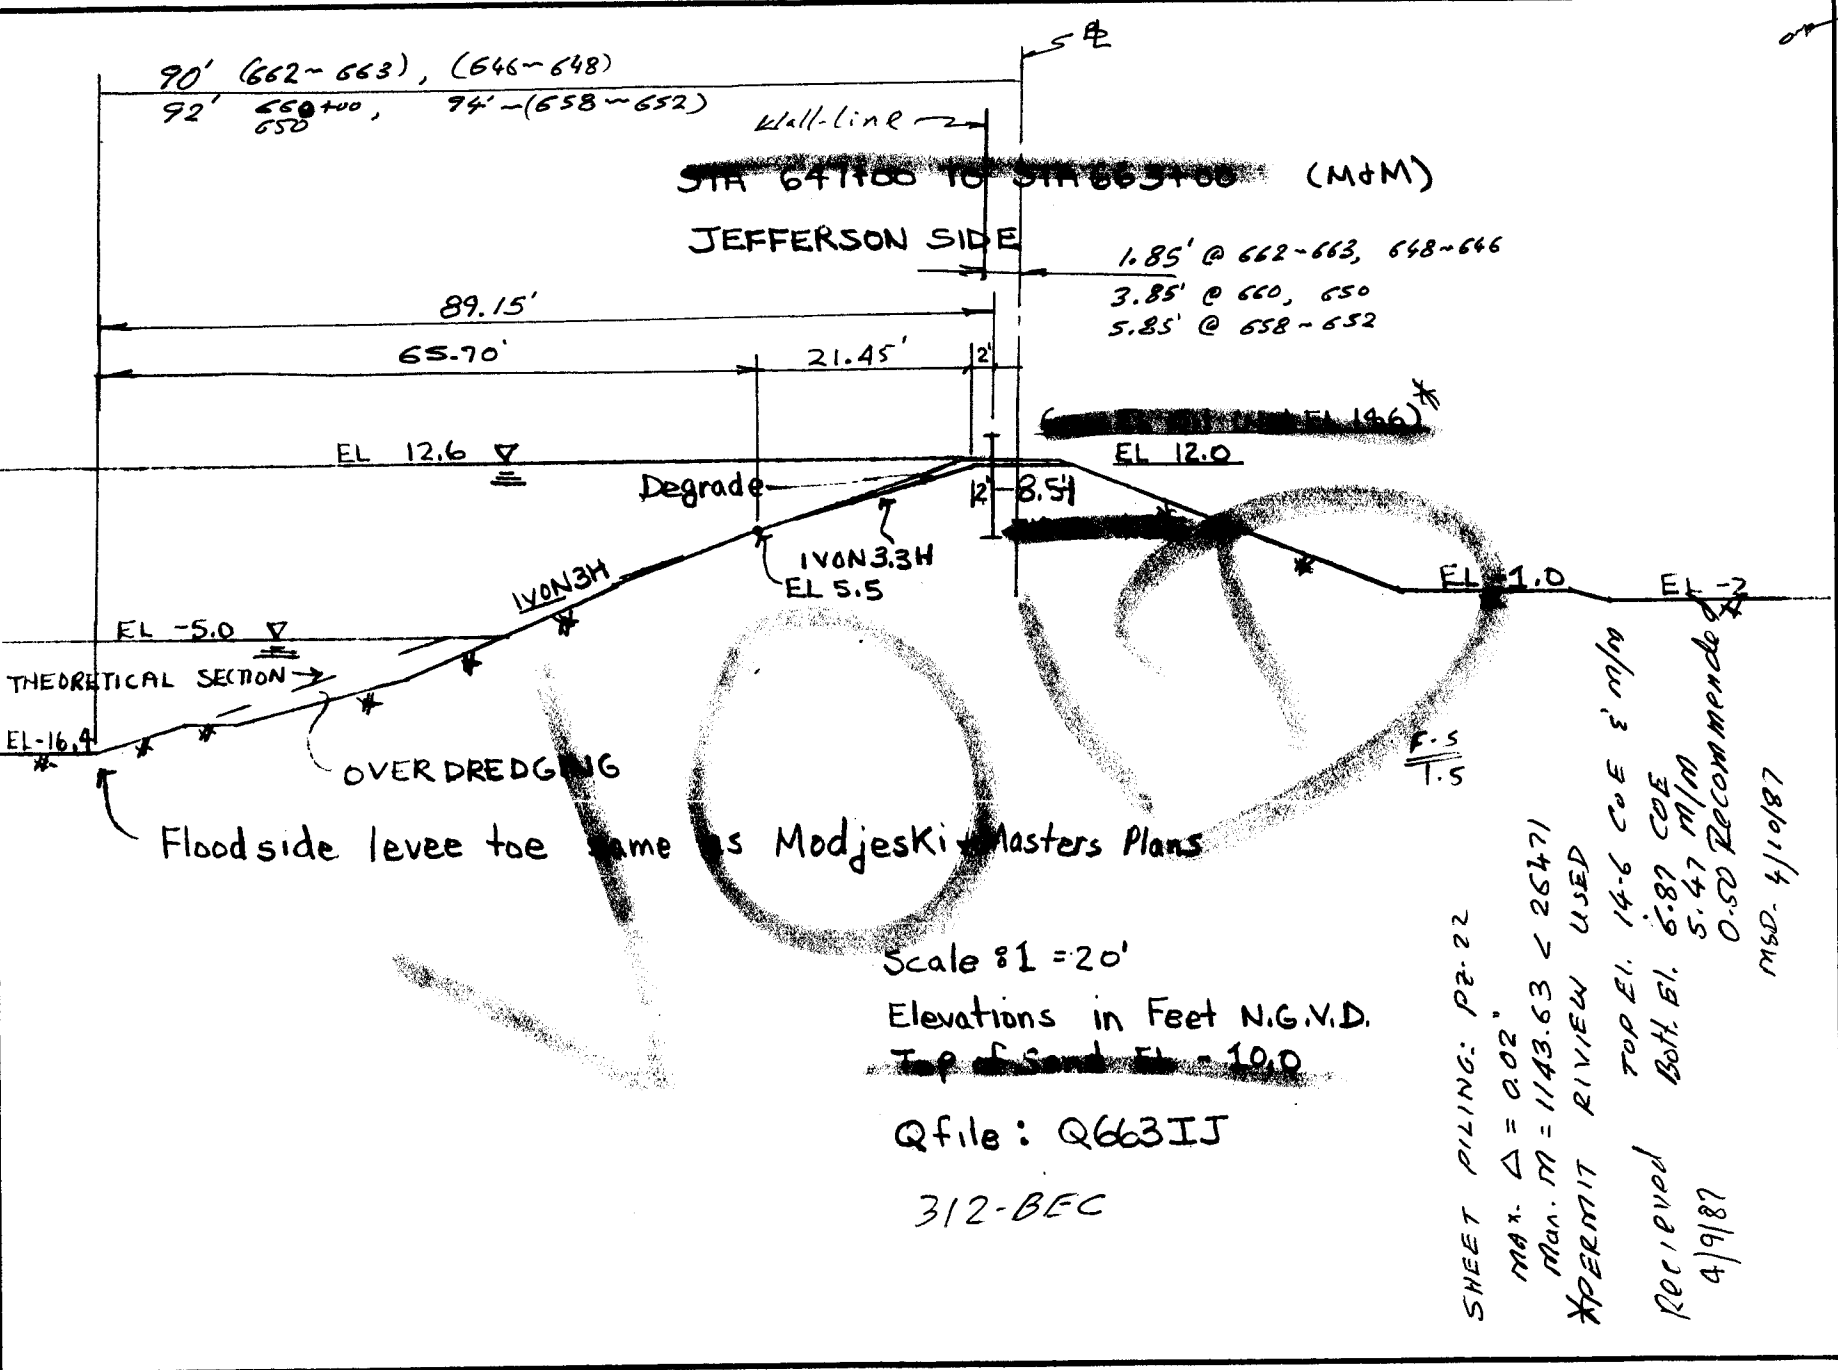 90' (662~663), (646~648)
92' 660+00, 94'~(658~652)
650
Wall-line
STA 647+00 TO STA 663+00 (M&M)
JEFFERSON SIDE
1.85' @ 662~663, 648~646
3.85' @ 660, 650
5.85' @ 658~652
89.15'
65.70' 21.45' 2'
EL 14.6)*
EL 12.6
EL 12.0
Degrade
2' 8.5'
1VON3.3H
EL 5.5
1VON3H
EL -1.0
EL -2
EL -5.0
THEORETICAL SECTION
EL-16.4
OVER DREDGING
F.S
1.5
Floodside levee toe same as Modjeski & Masters Plans
VOID
Scale : 1 = 20'
Elevations in Feet N.G.V.D.
Top of Sand EL -10.0
Qfile: Q663IJ
312-BEC
SHEET PILING: PZ-22
MAX. Δ = 0.02"
Max. M = 1143.63 < 26471
*PERMIT RIVIEW USED
TOP El. 14.6 COE & M/M
Bott. El. 6.87 COE
5.47 M/M
0.50 Recommended
MSD- 4/10/87
Recieved
4/9/87